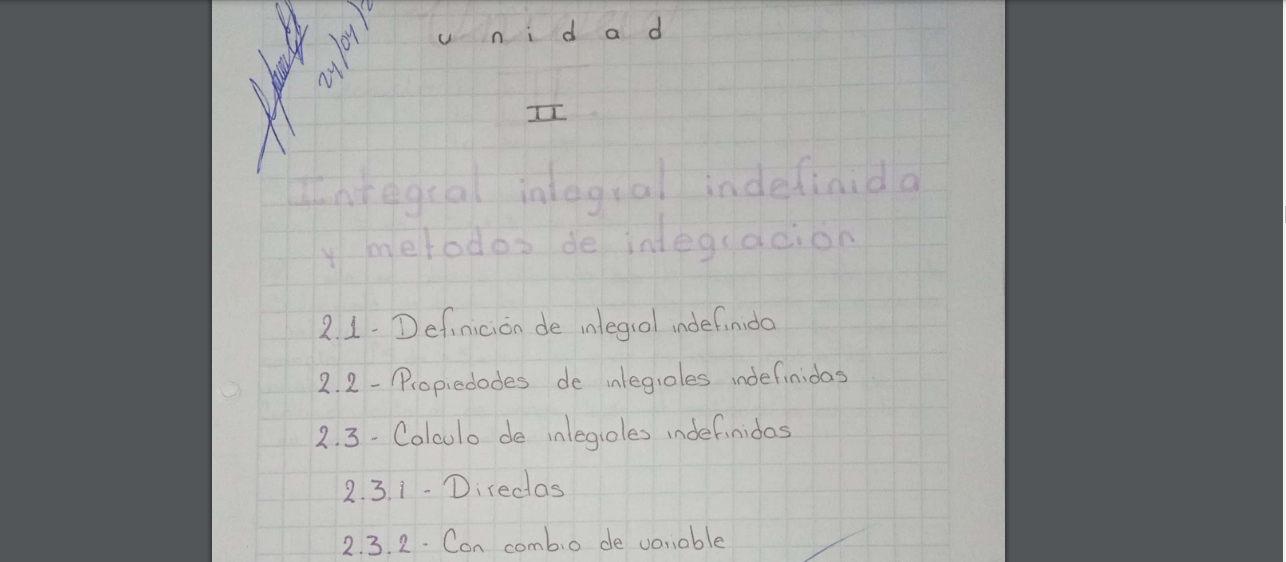 unidad
II
Integral integral indefinida
y metodos de integración
24/04/2
2.1- Definición de integral indefinida
2.2- Propiedades de integrales indefinidas
2.3- Calculo de integrales indefinidas
2.3.1- Directas
2.3.2- Con cambio de variable